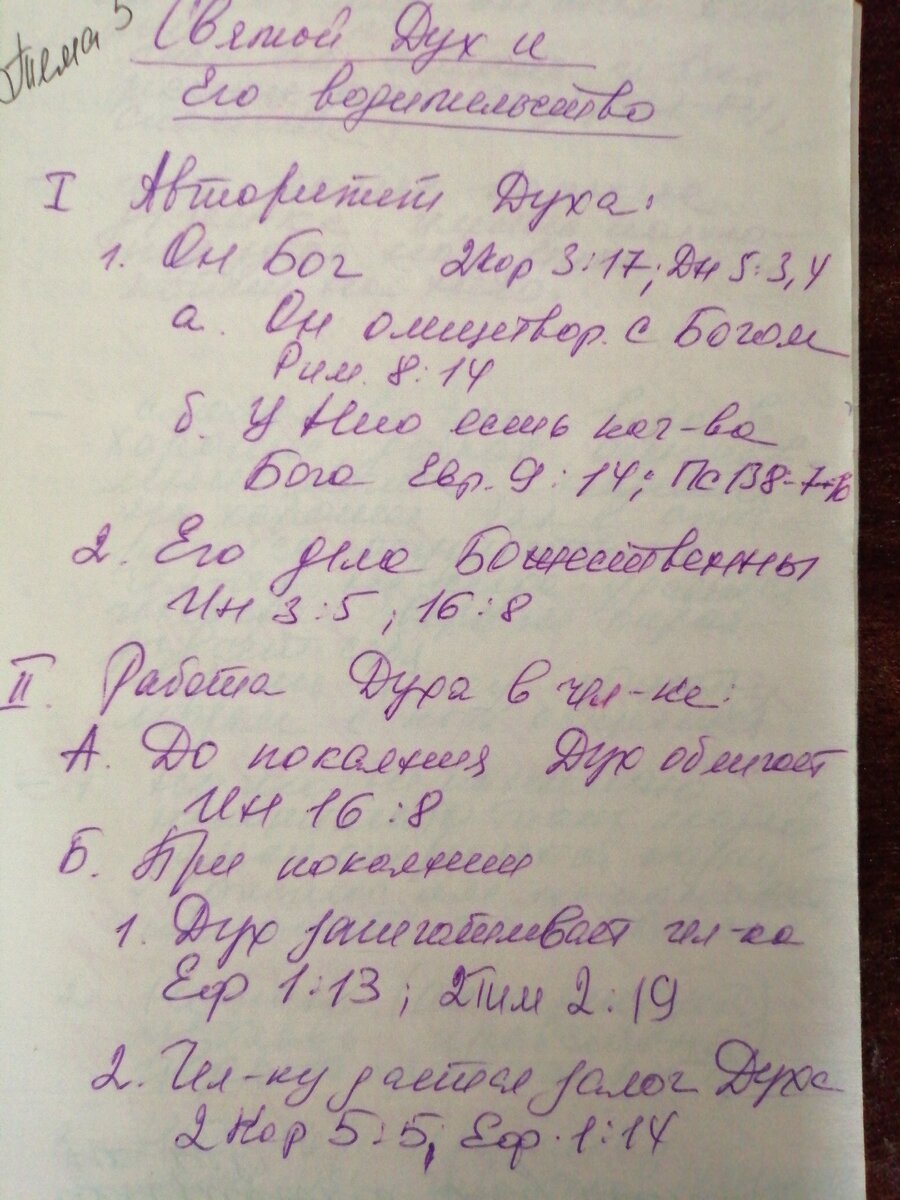 Тема 5
Святой Дух и
Его водительство
I Авторитет Духа:
1. Он Бог 2Кор 3:17; Дн 5:3,4
а. Он олицетвор. с Богом
Рим. 8:14
б. У Него есть кач-ва
Бога Евр. 9:14; Пс 138:7-10
2. Его дела Божественны
Ин 3:5; 16:8
II. Работа Духа в чел-ке:
А. До покаяния Дух обличает
Ин 16:8
Б. При покаянии
1. Дух запечатывает чел-ка
Еф 1:13; 2Тим 2:19
2. Чел-ку дается залог Духа
2 Кор 5:5, Еф. 1:14